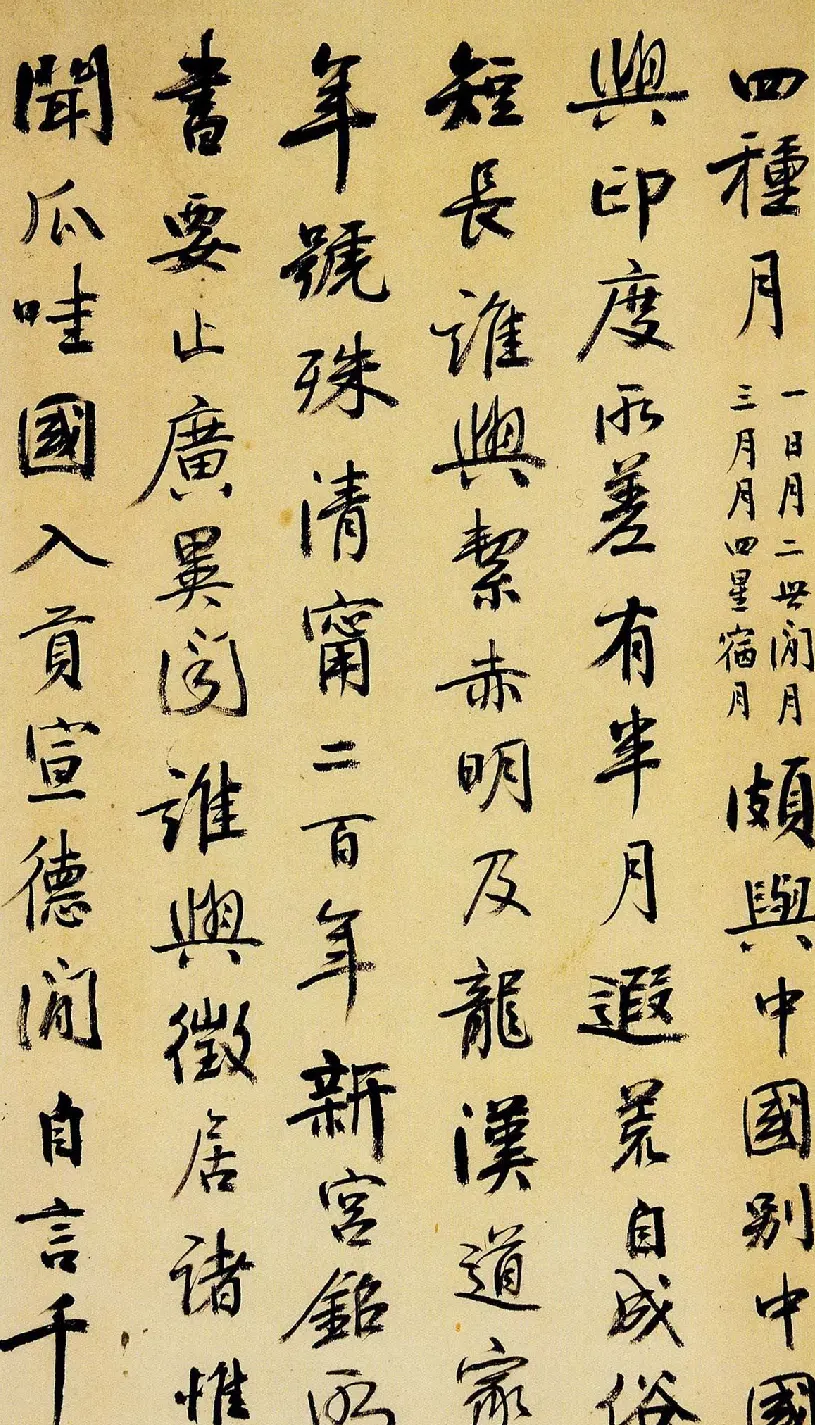 四種月
一日月二世間月
三月月四星宿月
頗與中國別中國
與印度所差有半月遐荒自成俗
短長誰與絜赤明及龍漢道家
年號殊清甯二百年新宮銘所
書要止廣異聞誰與徵居諸惟
聞瓜哇國入貢宣德間自言千